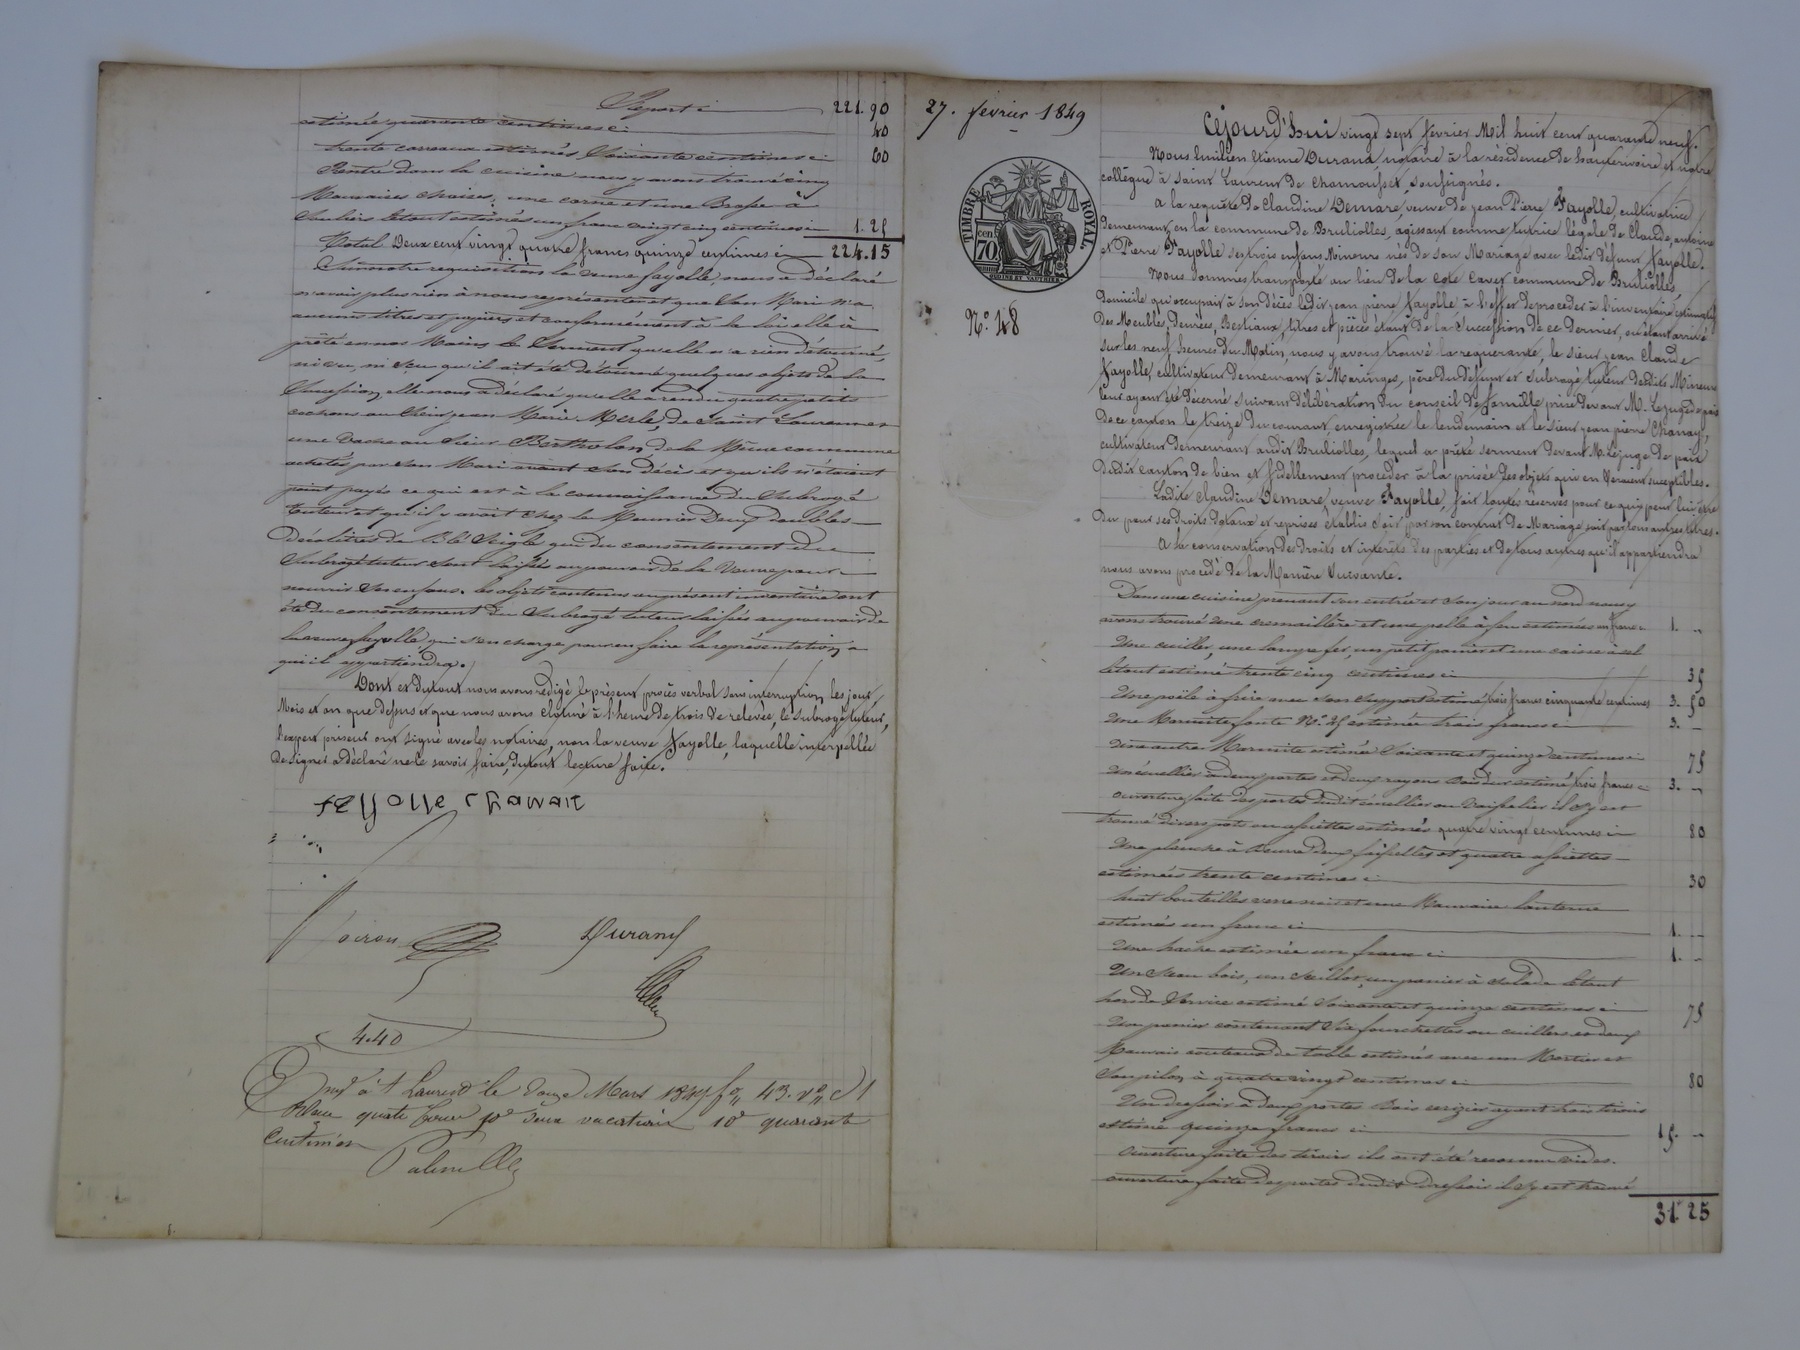 Report ci 221.90
estimée quarante centimes ci 40
trente carreaux estimés Soixante centimes ci 60
Rentré dans la cuisine nous y avons trouvé cinq
Mauvaises chaises, une corne et une Brosse à
Souliers letout estimés un franc vingt cinq centimes ci 1.25
Total Deux cent vingt quatre francs quinze centimes ci 224.15
Sur notre requisition la veuve fayolle, nous a déclaré
n'avoir plus rien à nous représenter et que Son Mari n'a
aucuns titres et papiers et conformément à la loi elle à
prêté en nos Mains le Serment qu'elle n'a rien détourné,
ni vu, ni Su qu'il ait été détourné quelques objets de la
Succession, elle nous a déclaré qu'elle a rendu quatre petits
cochons au Sieur jean Marie Merle, de Saint Laurent et
une Vache au Sieur Bertholon, de la Même commune
achetés par Son Mari avant Son Décès et qu'ils n'étaient
point payés ce qui est à la connaissance du Subrogé
tuteur et qu'il y avait chez le Meunier Deux doubles
Decalitres de Blé Seigle qui du consentement du
Subrogé tuteur Sont laissés au pouvoir de la Veuve pour
nourrir Ses enfans. les objets contenus au présent inventaire ont
été du consentement du Subrogé tuteur laissés au pouvoir de
la veuve fayolle qui s'en charge pour en faire la représentation a
qui il appartiendra.
Dont et dutout nous avons rédigé le présent procès verbal Sans interruption les jour
Mois et an que dessus et que nous avons cloturé à l'heure de trois de relevée, le Subrogé tuteur,
l'expert priseur ont Signé avec les notaires, non la veuve fayolle, laquelle interpellée
de Signer a déclaré ne le savoir faire, dutout lecture faite.
fayolle chanait
Voiron Durand
4.40
Enregé à St Laurent le Douze Mars 1849 fo 43. Vo C 1
Reçu quatre francs pr deux vacations 10e quarante
Centimes
27. février 1849
TIMBRE ROYAL
cen 70
No. 148
Cejourd'hui vingt sept février Mil huit cent quarante neuf.
Nous Emilien Etienne Durand notaire à la résidence de hauterivoire et notre
collègue à Saint Laurent de Chamousset, Soussignés.
A la requête de Claudine Demare, veuve de jean Pierre Fayolle, cultivatrice
demeurant en la commune de Brullioles, agissant comme tutrice légale de Claude, antoine
et Pierre Fayolle ses trois enfans Mineurs nés de son Mariage avec ledit défunt fayolle.
Nous Sommes transporté au lieu de la commune de Brullioles
domicile qu'occupait à son décès ledit jean pierre fayolle à l'effet de procéder à l'inventaire estimatif
des Meubles, denrées, Bestiaux, titres et pièces étant de la Succession de ce dernier, où étant arrivé
sur les neuf heures du Matin, nous y avons trouvé la requerante, le sieur jean Claude
Fayolle, cultivateur demeurant à Maringes, père du défunt et Subrogé tuteur desdits Mineurs
leur ayant été décerné suivant délibération du conseil de famille prise devant M. Lejuge depaix
de ce canton le treize du courant, enregistrée le lendemain et le Sieur jean pierre Chanay,
cultivateur demeurant audit Brullioles, lequel a prêté serment devant M. Lejuge de paix
dudit canton de bien et fidellement procéder à la prisée des objets qui en Seraient susceptibles.
Ladite Claudine Demare, veuve Fayolle, fait toutes réserves pour ce qui peut lui être
du pour ses droits dotaux et reprises établis soit par son contrat de Mariage soit par tous autres titres.
A la conservation des droits et intérêts des parties et de tous autres qu'il appartiendra
nous avons procédé de la Manière Suivante.
Dans une cuisine prenant son entrée et Son jour au nord nous y
avons trouvé Une cremaillère et une pelle à feu estimées un franc ci 1. "
Une cuiller, une lampe fer, un petit panier et une caisse à sel
letout estimé trente cinq centimes ci 35
Une poële à frire avec Son Support estimé trois francs cinquante centimes 3. 50
Une Marmite fonte No. 25 estimée trois francs ci 3. "
Une autre Marmite estimée Soixante et quinze centimes ci 75
Un évuellier à deux portes et deux rayons bois dur estimé trois francs ci 3. "
ouverture faite des portes dudit évuellier ou Vaisselier il s'y est
trouvé divers pots ou assiettes estimés quatre vingt centimes ci 80
Une planche à beurre deux faisselles et quatre assiettes
estimées trente centimes ci 30
huit bouteilles verre noir et une Mauvaise lanterne
estimés un franc ci 1. "
Une hache estimée un franc ci 1. "
Un Seau bois, un Seillot, un panier à Salade letout
hors de Service estimé Soixante et quinze centimes ci 75
Un panier contenant Six fourchettes ou cuillers et deux
Mauvais couteaux de table estimés avec un Mortier et
Son pilon à quatre vingt centimes ci 80
Un dressoir à deux portes bois cerizier ayant trois tiroirs
estimé quinze francs ci 15. "
Ouverture faite des tiroirs ils ont été reconnu vides.
ouverture faite des portes dudit Dressoir il s'y est trouvé
31.25